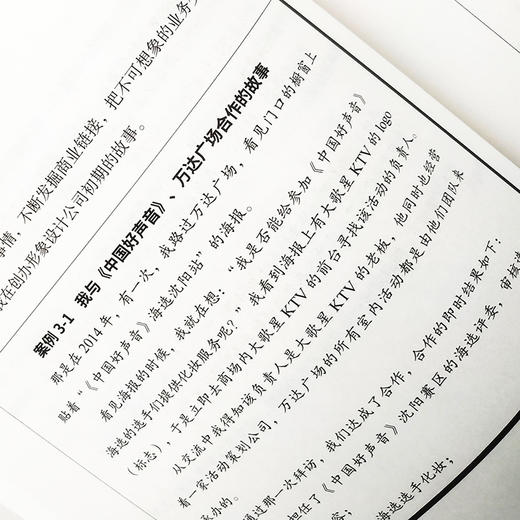 事情，不断发掘商业链接，把不可想象的业务
在创办形象设计公司初期的故事。
案例 3-1 我与《中国好声音》、万达广场合作的故事
那是在 2014 年，有一次，我路过万达广场，看见门口的橱窗上
贴着“《中国好声音》海选沈阳站”的海报。
看见海报的时候，我就在想：“我是否能给参加《中国好声音》
海选的选手们提供化妆服务呢？”我看到海报上有大歌星 KTV 的 logo
（标志），于是立即去商场内大歌星 KTV 的前台寻找该活动的负责人。
从交流中我得知该负责人是大歌星 KTV 的老板，他同时也经营
着一家活动策划公司，万达广场的所有室内活动都是由他们团队来
承办的。
通过那一次拜访，我们达成了合作，合作的即时结果如下：
担任了《中国好声音》沈阳赛区的海选评委，审核选
海选选手化妆；